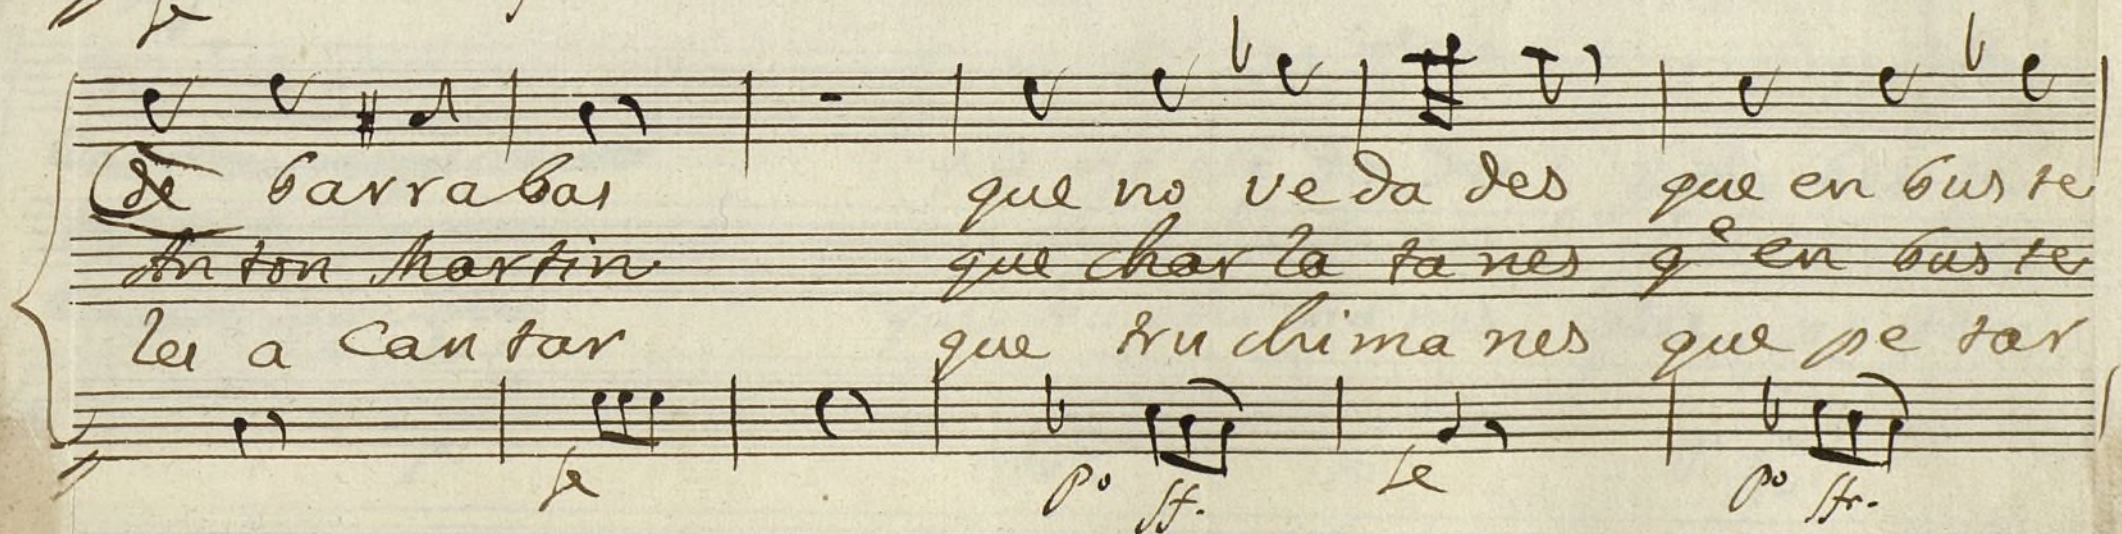 fe
de barrabas que no ve da des que en bus te
An ton Martin que char la ta nes qe en bus te
les a can tar que tru chi ma nes que pe tar
fe po ff. fe po ffr.